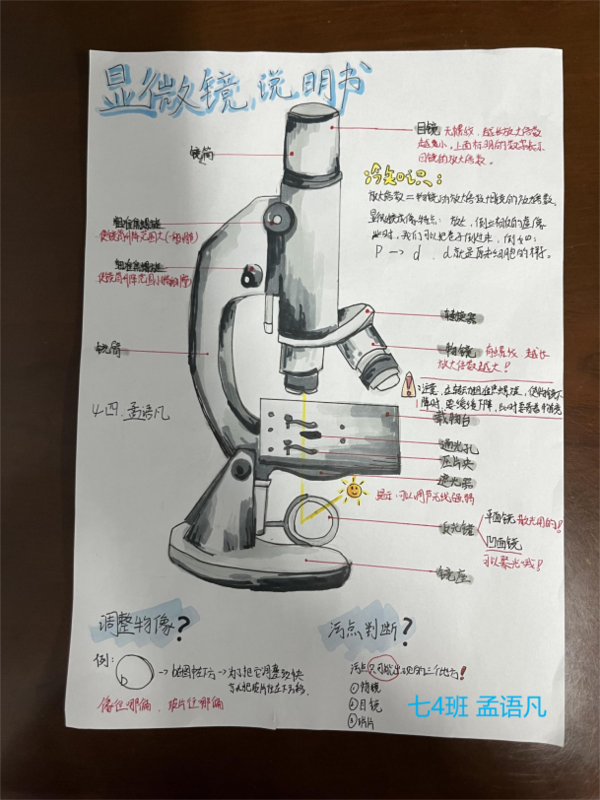 显微镜说明书
目镜 无螺纹,越长放大倍数
越小,上面标明的数字表示
目镜的放大倍数。
镜筒
冷知识:
放大倍数=物镜的放大倍数×目镜的放大倍数
显微镜成像特点:放大,倒立
此时,我们可以把卷子倒过来,例如:
p → d. d就是原来细胞的样。
粗准焦螺旋
使镜筒升降范围大
细准焦螺旋
使镜筒升降范围小
转换器
物镜 有螺纹 越长
放大倍数越大!
镜臂
注意:在转动粗准焦螺旋,使物镜下
降时,要缓缓下降,
载物台
七四.孟语凡
通光孔
压片夹
遮光器
提示:可以调节光线强弱
反光镜
平面镜 散光用的!
凹面镜
可以聚光哦!
镜座
调整物像?
例:
b →b在图左下方→为了把它调整到
像在哪偏,玻片往哪偏
污点判断?
污点只可能出现的三个地方!
①物镜
②目镜
③玻片
七4班 孟语凡